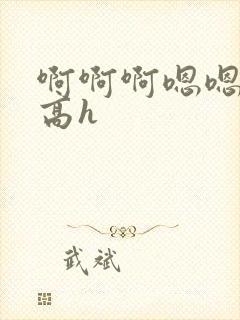 啊啊啊嗯嗯
高h
武斌